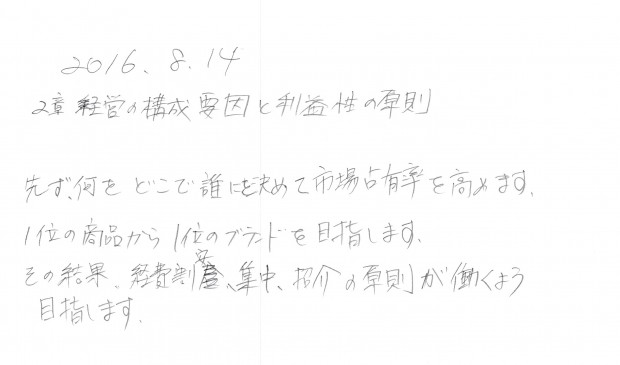 2016.8.14
2章 経営の構成要因と利益性の原則
先ず、何を どこで 誰にを決めて市場占有率を高めます。
1位の商品から1位のブランドを目指します。
その結果、経費割安、集中、紹介の原則が働くよう
目指します。